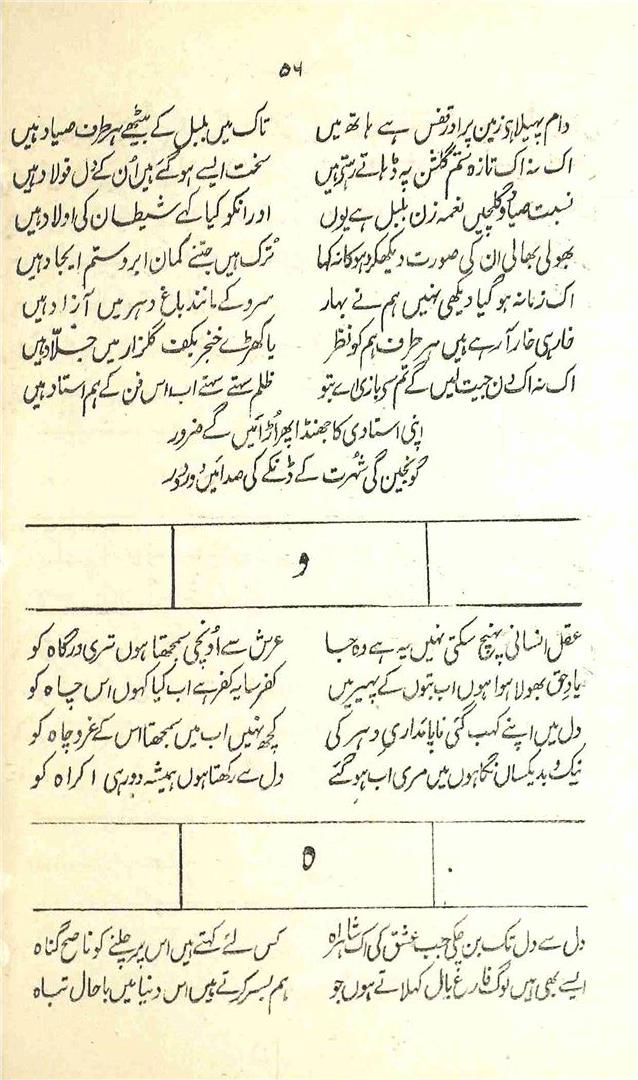 ۵۶
دام پھیلا ہے زمین پر اور قفس ہے ہاتھ میں تاک میں بلبل کے بیٹھے ہر طرف صیاد ہیں
اک نہ اک تازہ ستم گلشن پہ ڈہاتے رہتے ہیں سخت ایسے ہو گئے ہیں اُن کے دل فولاد ہیں
نسبت صیاد و گلچیں نغمہ زن بلبل ہے یوں اور انکو کیا کہے شیطان کی اولاد ہیں
بھولی بھالی ان کی صورت دیکھکر دہوکا نہ کھا تُرک ہیں جتنے کمان ابرو ستم ایجاد ہیں
اک زمانہ ہو گیا دیکھی نہیں ہم نے بہار سرو کے مانند باغِ دہر میں آزاد ہیں
خار ہی خار آ رہے ہیں ہر طرف ہم کو نظر یا کھڑے خنجر بکف گلزار میں جلّاد ہیں
اک نہ اک دن جیت لیں گے تم سے بازی اے بتو ظلم سہتے سہتے اب اس فن کے ہم استاد ہیں
اپنی استادی کا جھنڈا پھر اُڑائیں گے ضرور
گونجیں گی شہرت کے ڈنکے کی صدائیں دور دور
و
عقل انسانی پہنچ سکتی نہیں یہ ہے وہ جا عرش سے اونچی سمجھتا ہوں تری درگاہ کو
یادِ حق بھولا ہوا ہوں اب بتوں کے پھیر میں کفر سا یہ کفر ہے اب کیا کہوں اس چاہ کو
دل میں اپنے کھب گئی ناپائداریِ دہر کی کچھ نہیں اب میں سمجھتا اس کے عز و جاہ کو
نیک و بد یکساں نگاہوں میں مری اب ہو گئے دل سے رکھتا ہوں ہمیشہ دور ہی اکراہ کو
ہ
دل سے دل تک بن چکی جب عشق کی اک شاہراہ کس لئے کہتے ہیں اس پر چلنے کو ناصح گناہ
ایسے بھی ہیں لوگ فارغ بال کہلاتے ہوں جو ہم بسر کرتے ہیں اس دنیا میں با حال تباہ